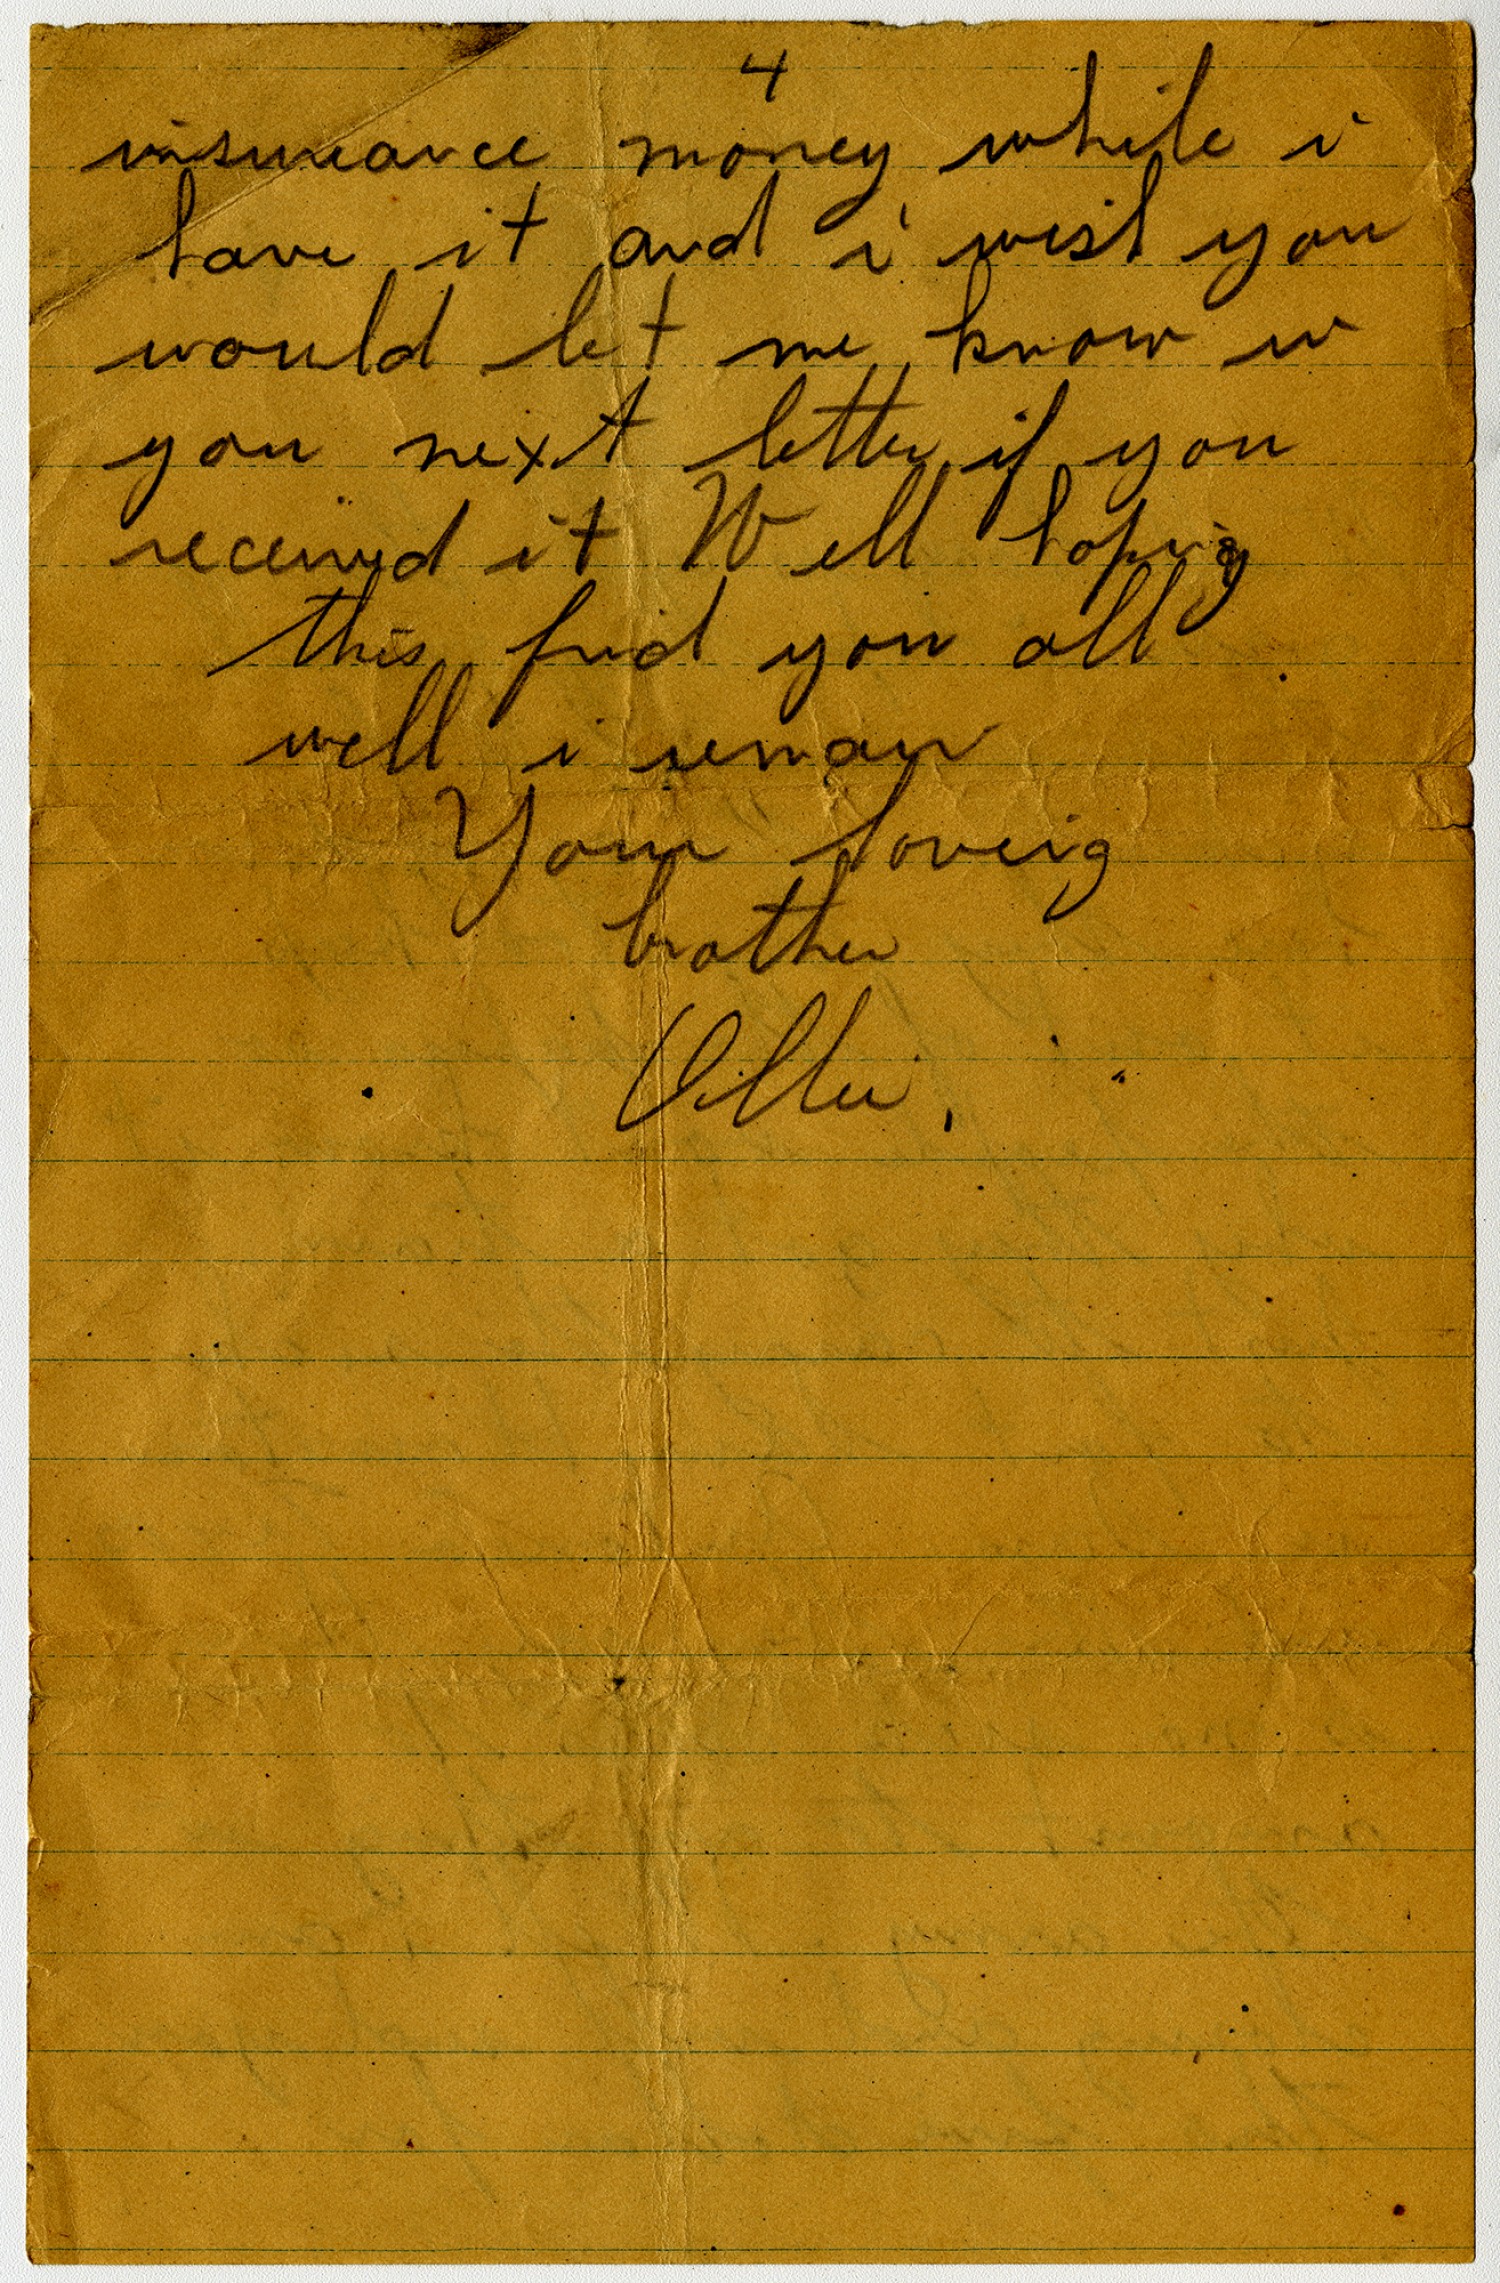 4
insureance money while i
have it and i wish you
would let me know in
you next letter if you
received it Well hoping
this find you all
well i remain
Your loveig
brother
Ollie.